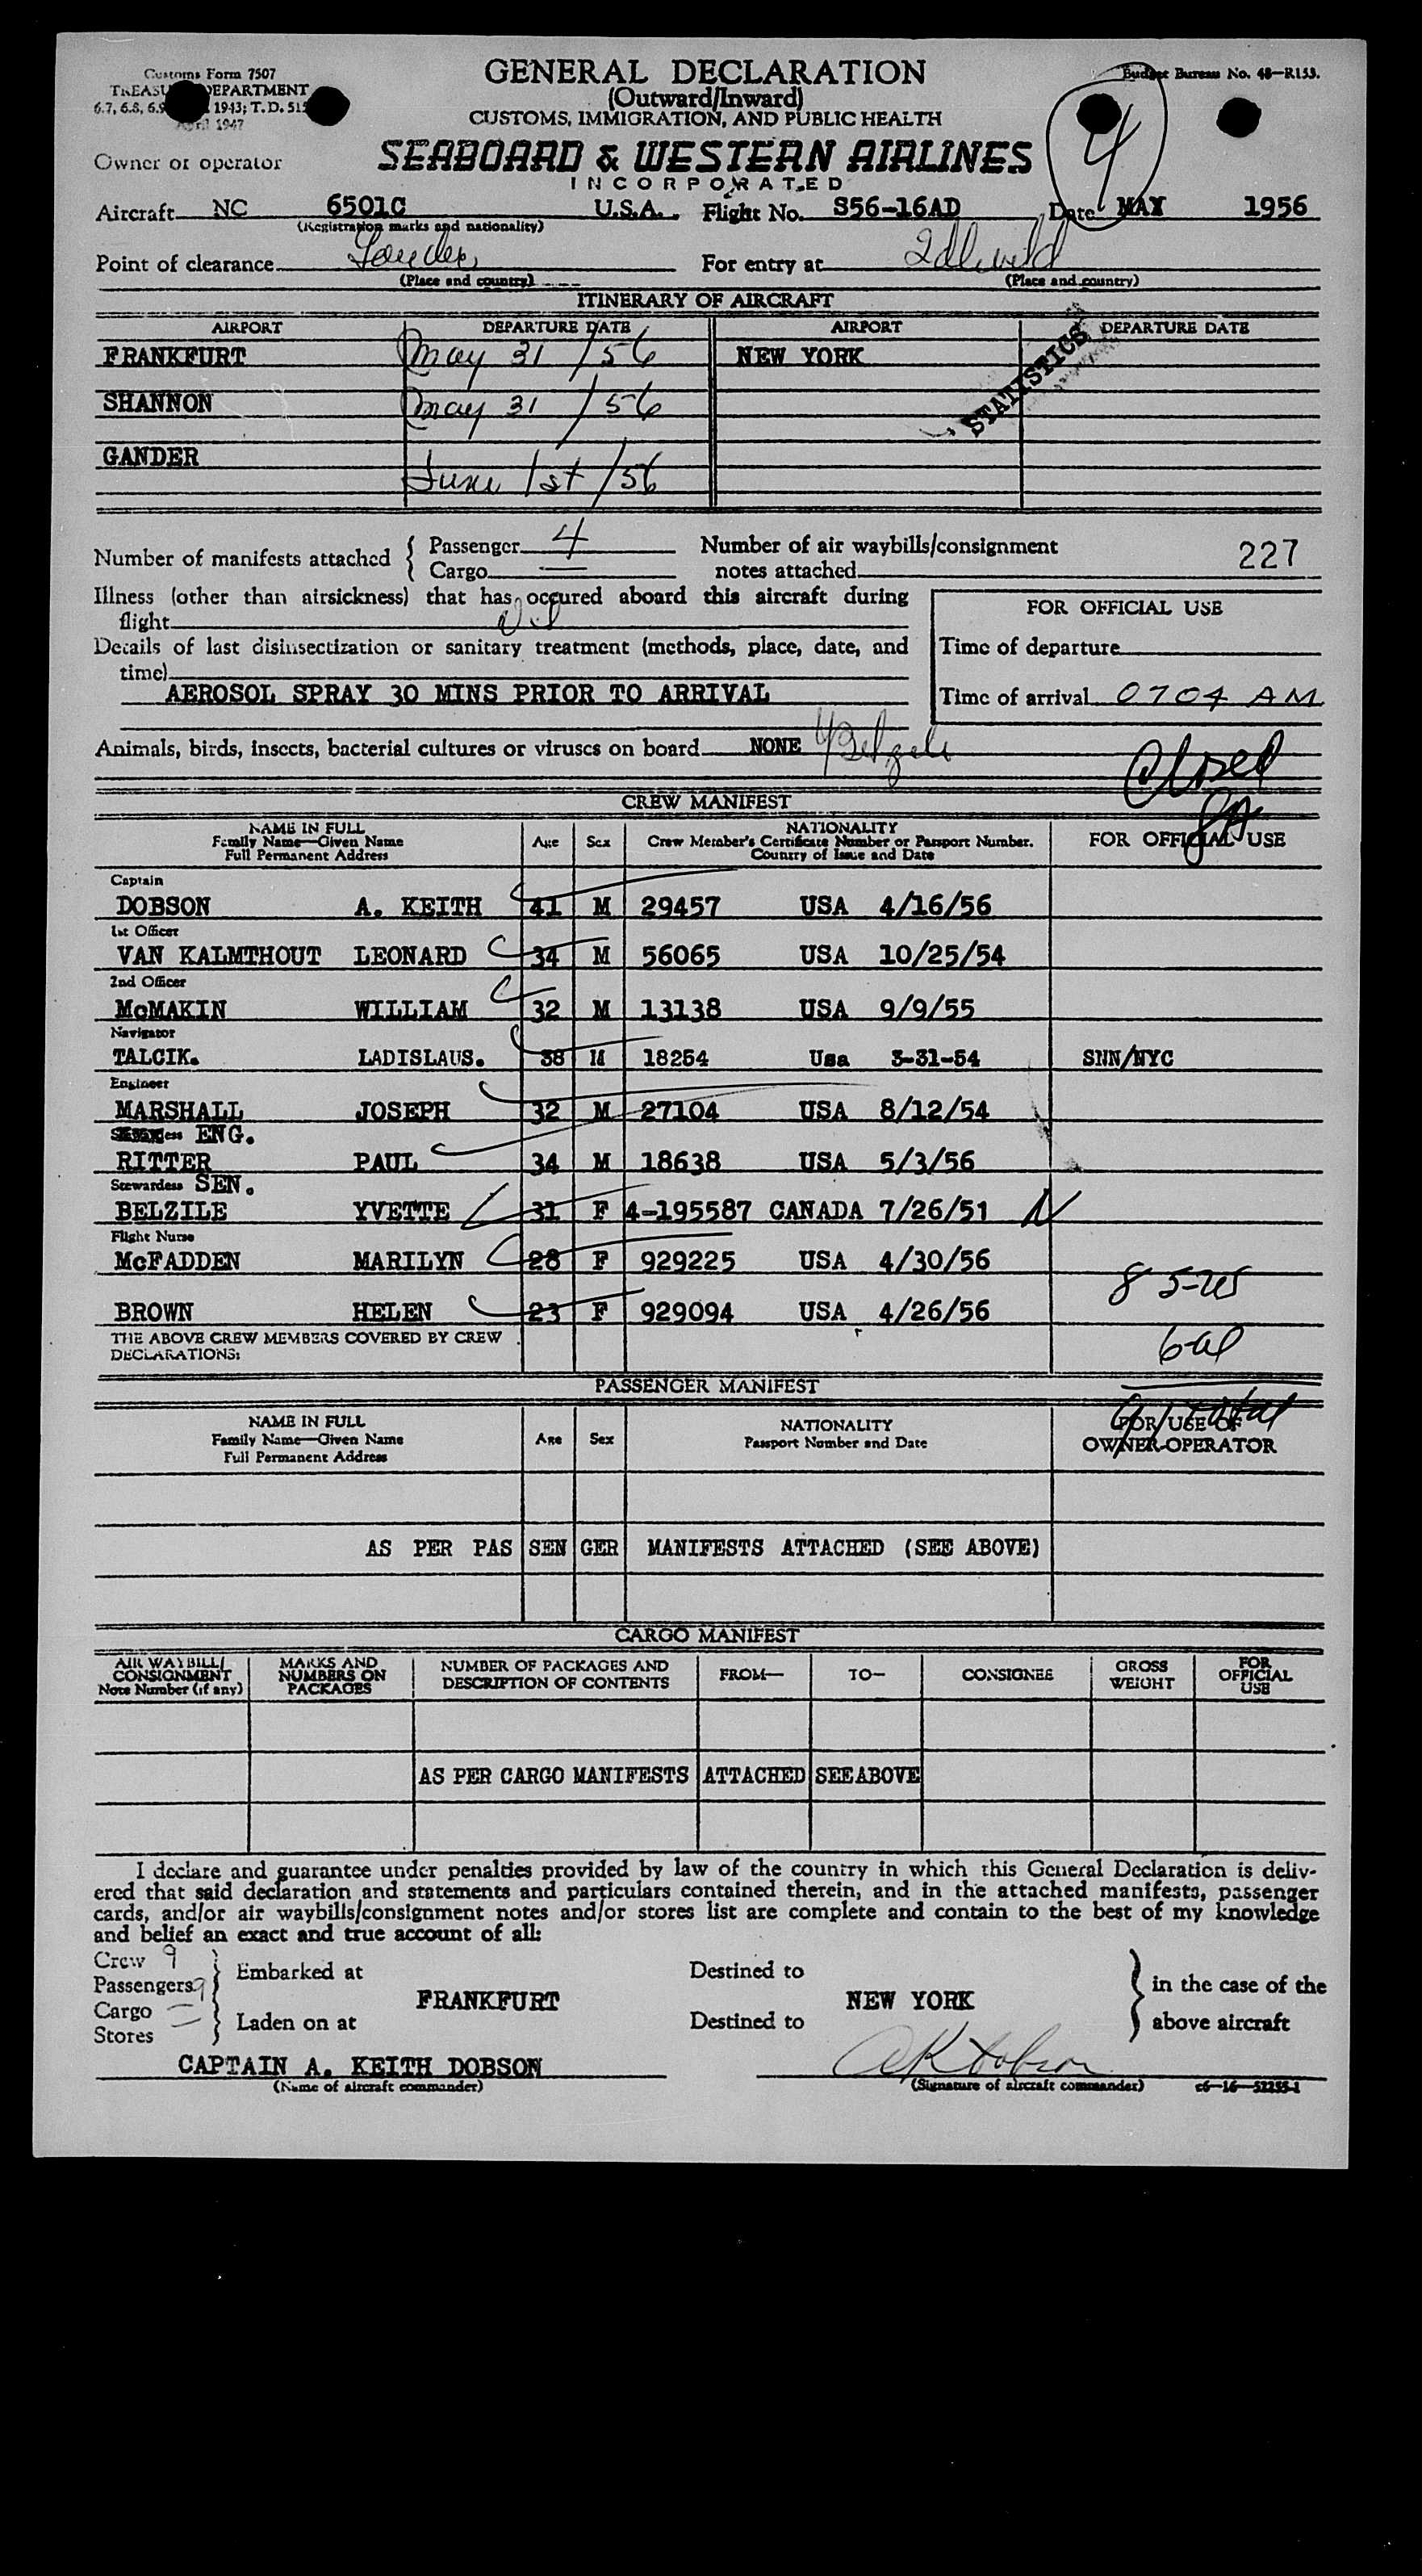 Customs Form 7507
TREASU DEPARTMENT
6.7, 6.8, 6.9 1943; T.D. 515
April 1947
GENERAL DECLARATION
(Outward/Inward)
CUSTOMS, IMMIGRATION, AND PUBLIC HEALTH
Budget Bureau No. 48—R153.
4
Owner or operator SEABOARD & WESTERN AIRLINES
INCORPORATED
Aircraft NC 6501C U.S.A. Flight No. S56-16AD Date MAY 1956
(Registration marks and nationality)
Point of clearance Gander For entry at Idlewild
(Place and country) (Place and country)
ITINERARY OF AIRCRAFT
AIRPORT DEPARTURE DATE AIRPORT DEPARTURE DATE
FRANKFURT May 31 /56 NEW YORK
STATISTICS
SHANNON May 31 /56
GANDER
June 1st /56
Number of manifests attached { Passenger 4 Number of air waybills/consignment 227
Cargo — notes attached
Illness (other than airsickness) that has occured aboard this aircraft during
flight Nil
FOR OFFICIAL USE
Details of last disinsectization or sanitary treatment (methods, place, date, and
time)
Time of departure
AEROSOL SPRAY 30 MINS PRIOR TO ARRIVAL
Time of arrival 0704 AM
Animals, birds, insects, bacterial cultures or viruses on board NONE YBelzile
Closed
CREW MANIFEST
NAME IN FULL
Family Name—Given Name
Full Permanent Address
Age Sex
NATIONALITY
Crew Member's Certificate Number or Passport Number.
Country of Issue and Date
FOR OFFICIAL USE
Captain
DOBSON A. KEITH 41 M 29457 USA 4/16/56
1st Officer
VAN KALMTHOUT LEONARD 34 M 56065 USA 10/25/54
2nd Officer
McMAKIN WILLIAM 32 M 13138 USA 9/9/55
Navigator
TALCIK. LADISLAUS. 38 M 18254 Usa 3-31-54 SNN/NYC
Engineer
MARSHALL JOSEPH 32 M 27104 USA 8/12/54
ENG.
RITTER PAUL 34 M 18638 USA 5/3/56
Stewardess SEN.
BELZILE YVETTE 31 F 4-195587 CANADA 7/26/51 N
Flight Nurse
McFADDEN MARILYN 28 F 929225 USA 4/30/56
BROWN HELEN 23 F 929094 USA 4/26/56
THE ABOVE CREW MEMBERS COVERED BY CREW
DECLARATIONS:
PASSENGER MANIFEST
NAME IN FULL
Family Name—Given Name
Full Permanent Address
Age Sex
NATIONALITY
Passport Number and Date
FOR USE OF
OWNER-OPERATOR
AS PER PAS SEN GER MANIFESTS ATTACHED (SEE ABOVE)
CARGO MANIFEST
AIR WAYBILL/
CONSIGNMENT
Note Number (if any)
MARKS AND
NUMBERS ON
PACKAGES
NUMBER OF PACKAGES AND
DESCRIPTION OF CONTENTS
FROM— TO— CONSIGNEE
GROSS
WEIGHT
FOR
OFFICIAL
USE
AS PER CARGO MANIFESTS ATTACHED SEE ABOVE
I declare and guarantee under penalties provided by law of the country in which this General Declaration is deliv-
ered that said declaration and statements and particulars contained therein, and in the attached manifests, passenger
cards, and/or air waybills/consignment notes and/or stores list are complete and contain to the best of my knowledge
and belief an exact and true account of all:
Crew 9
Passengers 9
Cargo —
Stores
Embarked at
FRANKFURT
Laden on at
Destined to
NEW YORK
Destined to
in the case of the
above aircraft
CAPTAIN A. KEITH DOBSON AKDobson
(Name of aircraft commander) (Signature of aircraft commander) c6—16—52255-1